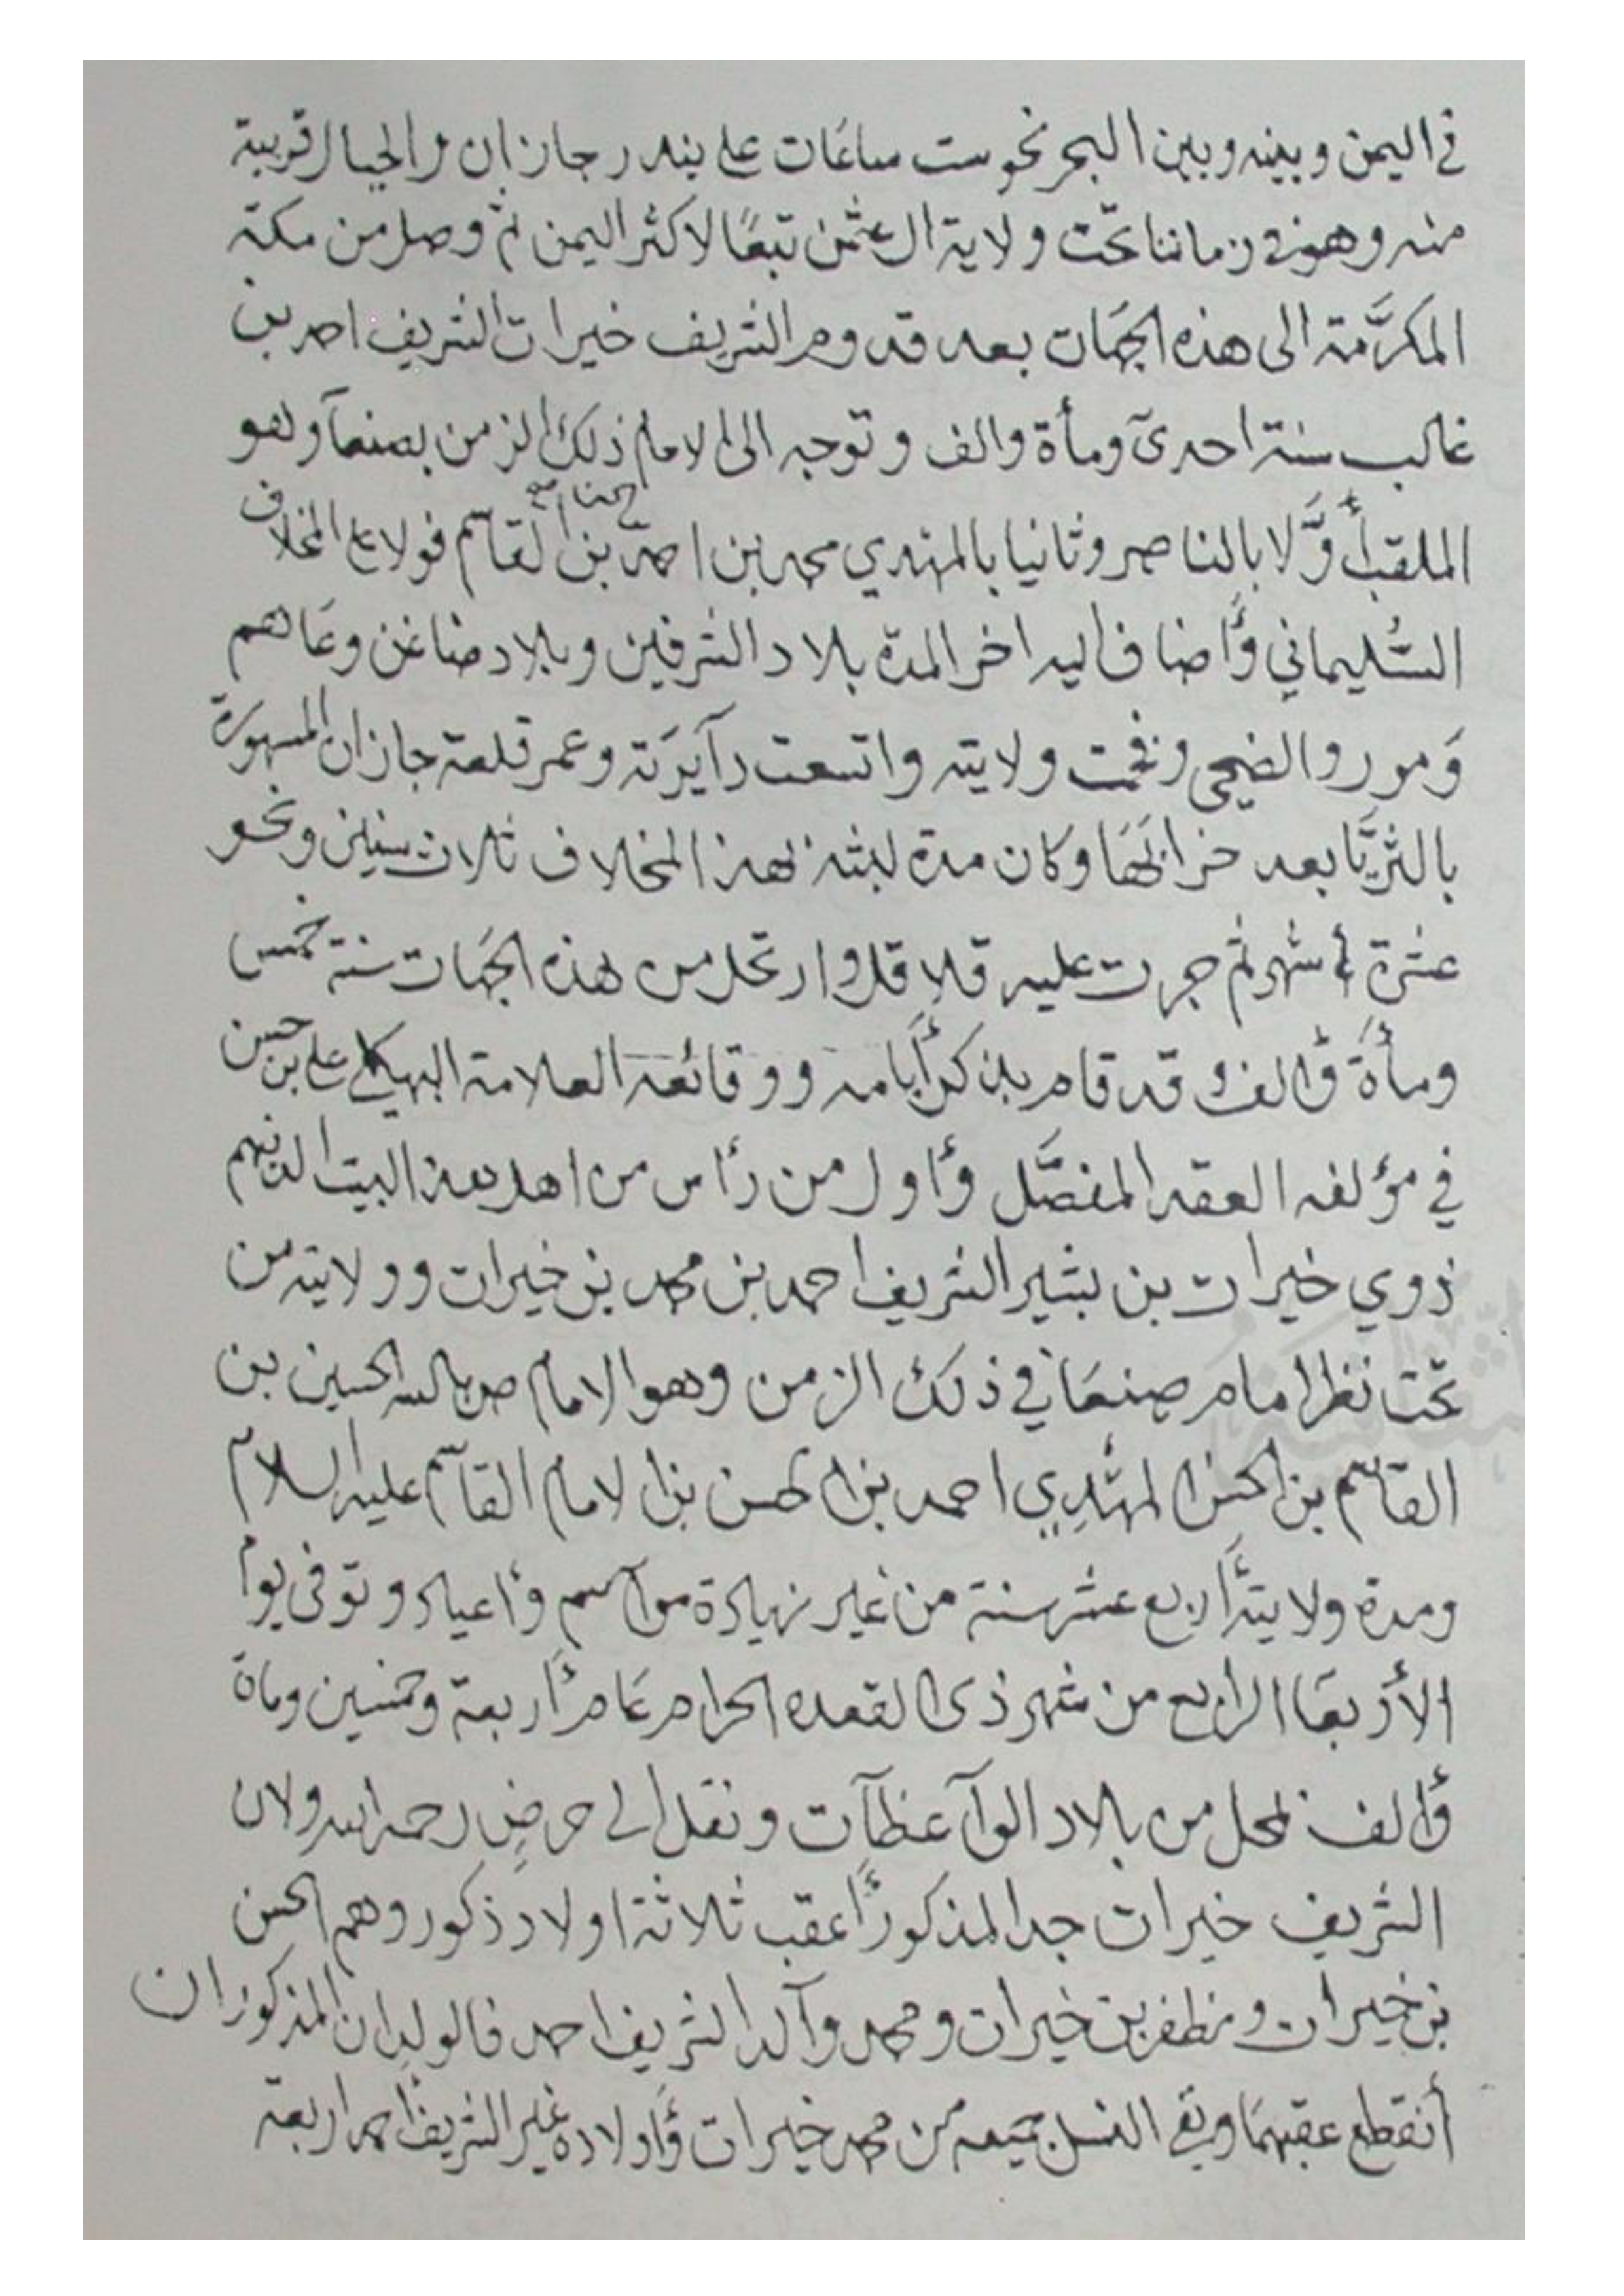 في اليمن وبينه وبين البحر نحو ست ساعات على بندر جازان والجبال قريبة
منه وهو في زماننا تحت ولاية ال عثمن تبعًا لاكثر اليمن ثم وصل من مكة
المكرَّمة الى هذه الجهات بعد قدوم الشريف خيرات الشريف احمد بن
غالب سنة احدى ومأة والف وتوجه الى الامام ذلك الزمن بصنعآ وهو
الملقب أوَّلا بالناصر وثانيا بالمهدي محمد بن احمد بن الحسن القاسم فولاه على المخلاف
السُليماني وأضاف اليه اخر المدة بلاد الشرفين وبلاد ضاعن وعاهم
وَمور والضحي وفخمت ولايته واتسعت دآيرته وعمر قلعة جازان المشهورة
بالثريَّا بعد خرابهَا وكان مدة لبثه بهذا المخلاف ثلاث سنين ونحو
عشرة أشهر ثم جرت عليه قلاقل وارتحل من هذه الجهات سنة خمس
ومأة وألف وقد قام بذكر أيامه ووقائعه العلامة البهكلي علي بن حسن
في مؤلفه العقد المفصَّل وأول من رأس من اهل هذا البيت الذين هم
ذوي خيرات بن بشير الشريف احمد بن محمد بن خيرات وولايته من
تحت نظر امام صنعَا في ذلك الزمن وهو الامام ص بالله الحسين بن
القاسم بن الحسن المهدي احمد بن الحسن بن الامام القاسم عليه السلام
ومدة ولايته أربع عشر سنة من غير زيادة مواسم وأعياد وتوفى يوم
الأربعا الرابع من شهر ذي القعده الحرام عام أربعة وخمسين ومأة
وألف بمحل من بلاد الوآعظآت ونقل الى حرض رحمه الله ولان
الشريف خيرات جد المذكور أعقب ثلاثة اولاد ذكور وهم الحسن
بن خيرات ومظفر بن خيرات ومحمد وآلد الشريف احمد فالولدان المذكوران
أنقطع عقبهما وبقي النسل جميعه من محمد خيرات وأولاده غير الشريف احمد اربعة